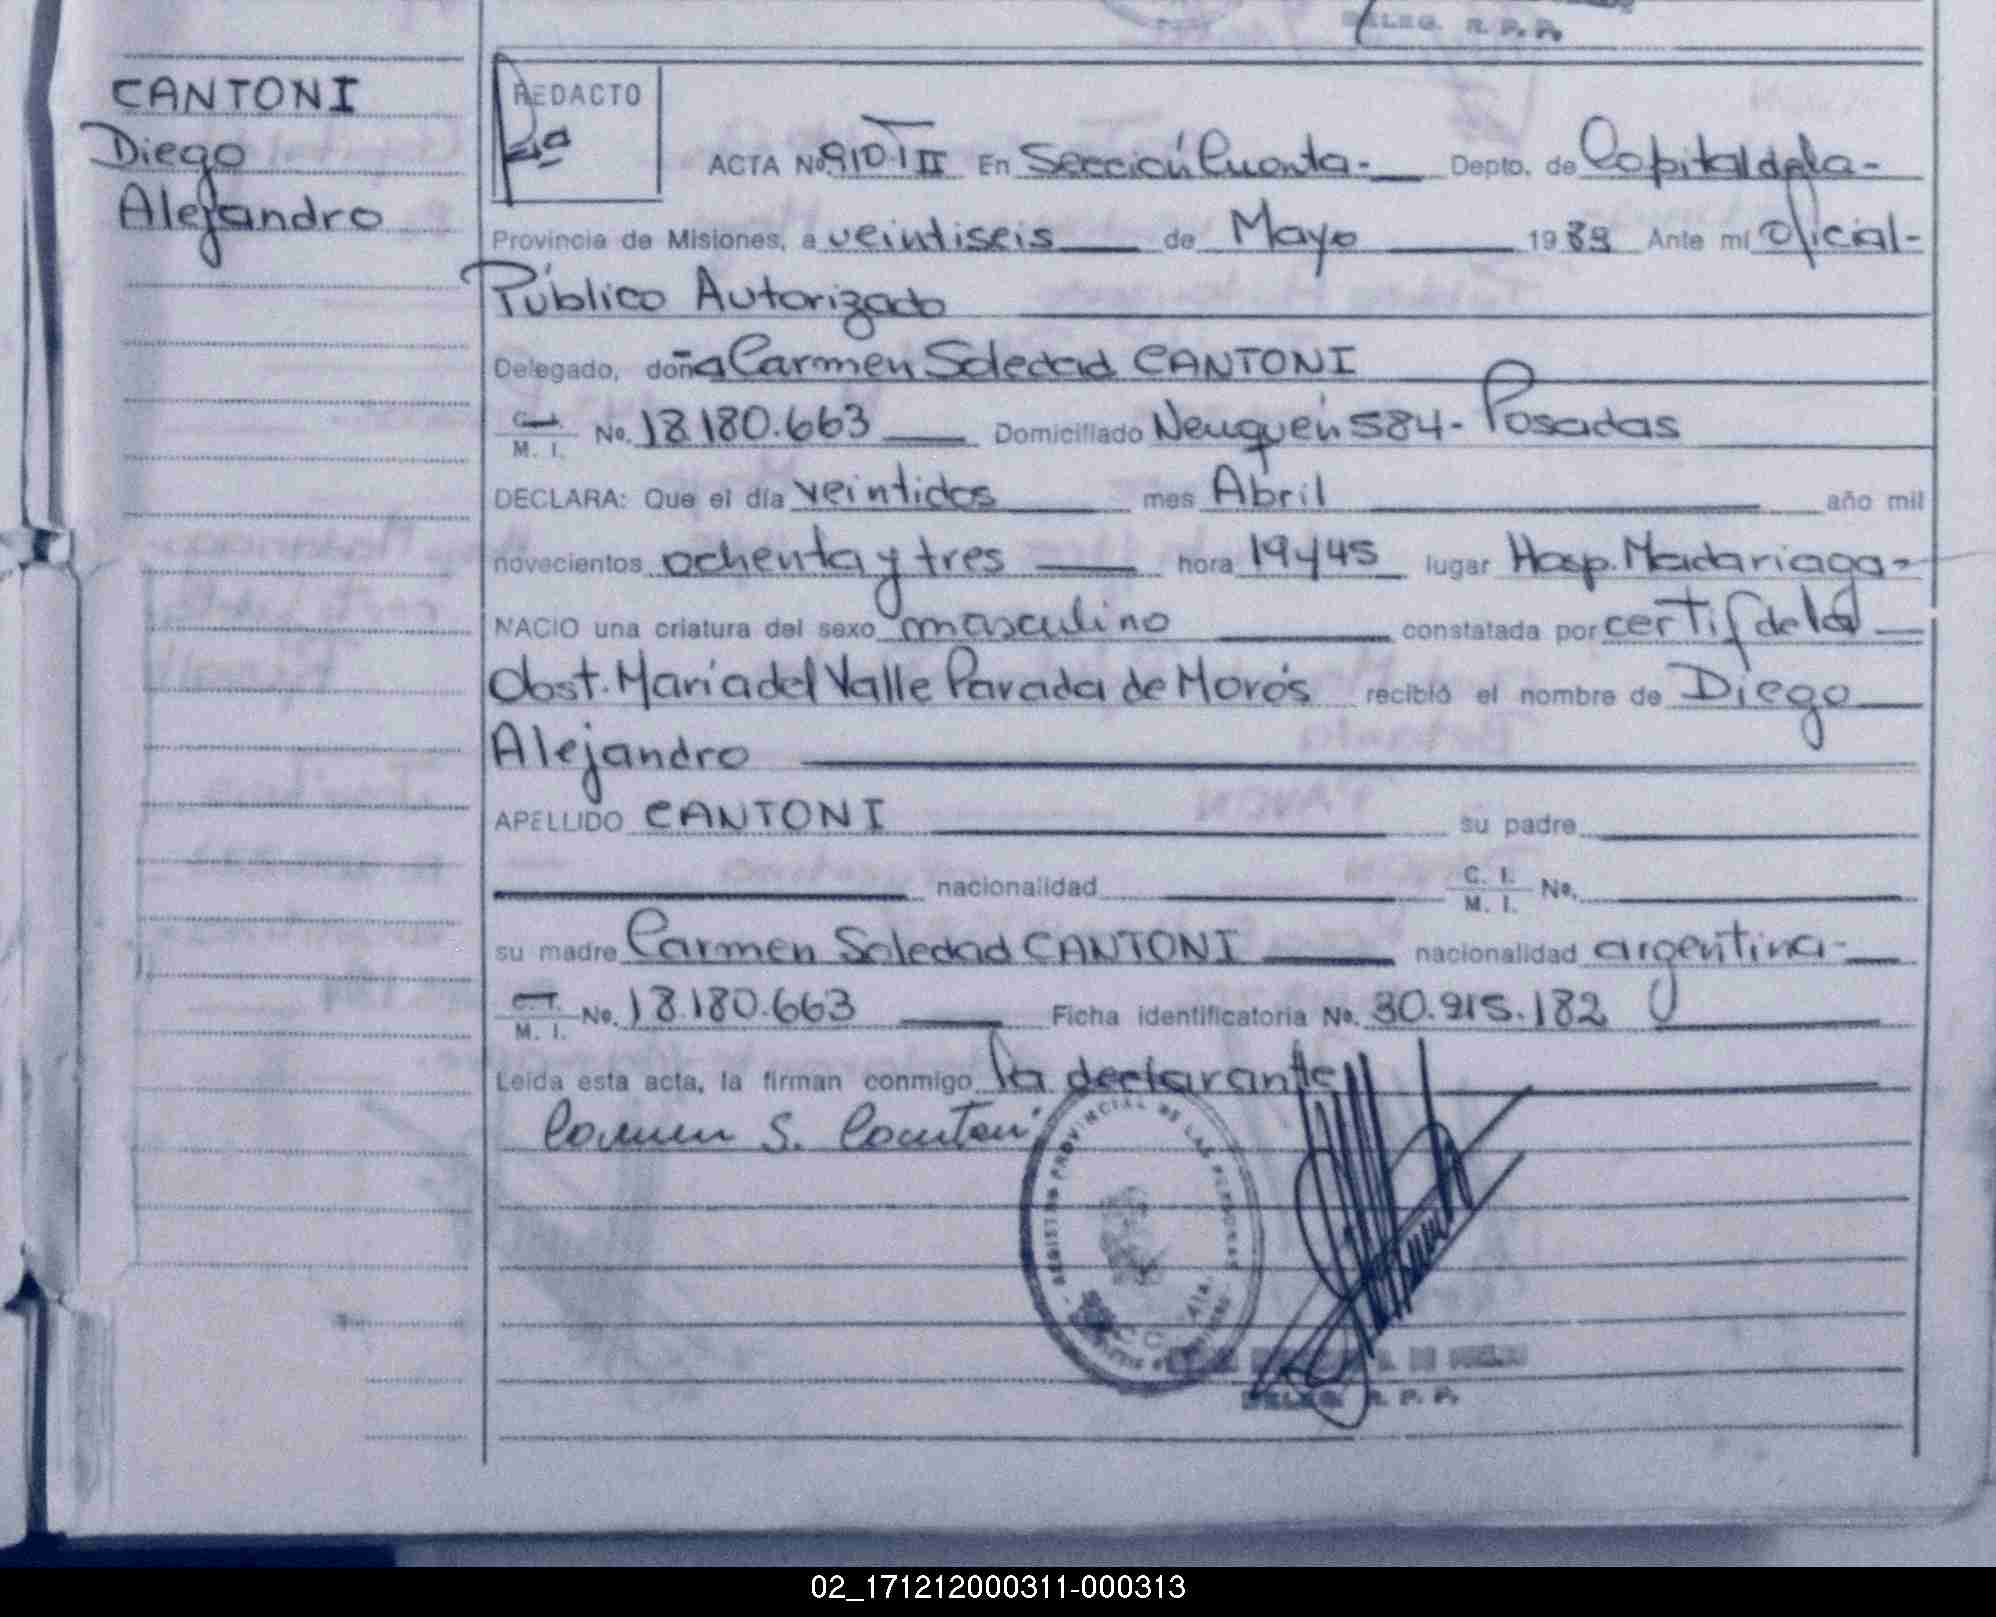 DELEG. R. P. P.
CANTONI
Diego
Alejandro
REDACTO
ACTA No 910 T II En Sección Cuarta - Depto. de Capital de la -
Provincia de Misiones, a veintiseis de Mayo 1983 Ante mí Oficial -
Público Autorizado
Delegado, doña Carmen Soledad CANTONI
C. I. / M. I. No. 18.180.663 Domiciliado Neuquén 584 - Posadas
DECLARA: Que el día veintidos mes Abril año mil
novecientos ochenta y tres hora 19 y 45 lugar Hosp. Madariaga -
NACIO una criatura del sexo masculino constatada por certif de la
Obst. María del Valle Parada de Morós recibió el nombre de Diego
Alejandro
APELLIDO CANTONI su padre
nacionalidad C. I. / M. I. No.
su madre Carmen Soledad CANTONI nacionalidad argentina -
C. I. / M. I. No. 18.180.663 Ficha identificatoria No. 30.915.182
Leída esta acta, la firman conmigo la declarante
Carmen S. Cantoni
REGISTRO PROVINCIAL DE LAS PERSONAS
DELEG. R. P. P.
02_171212000311-000313